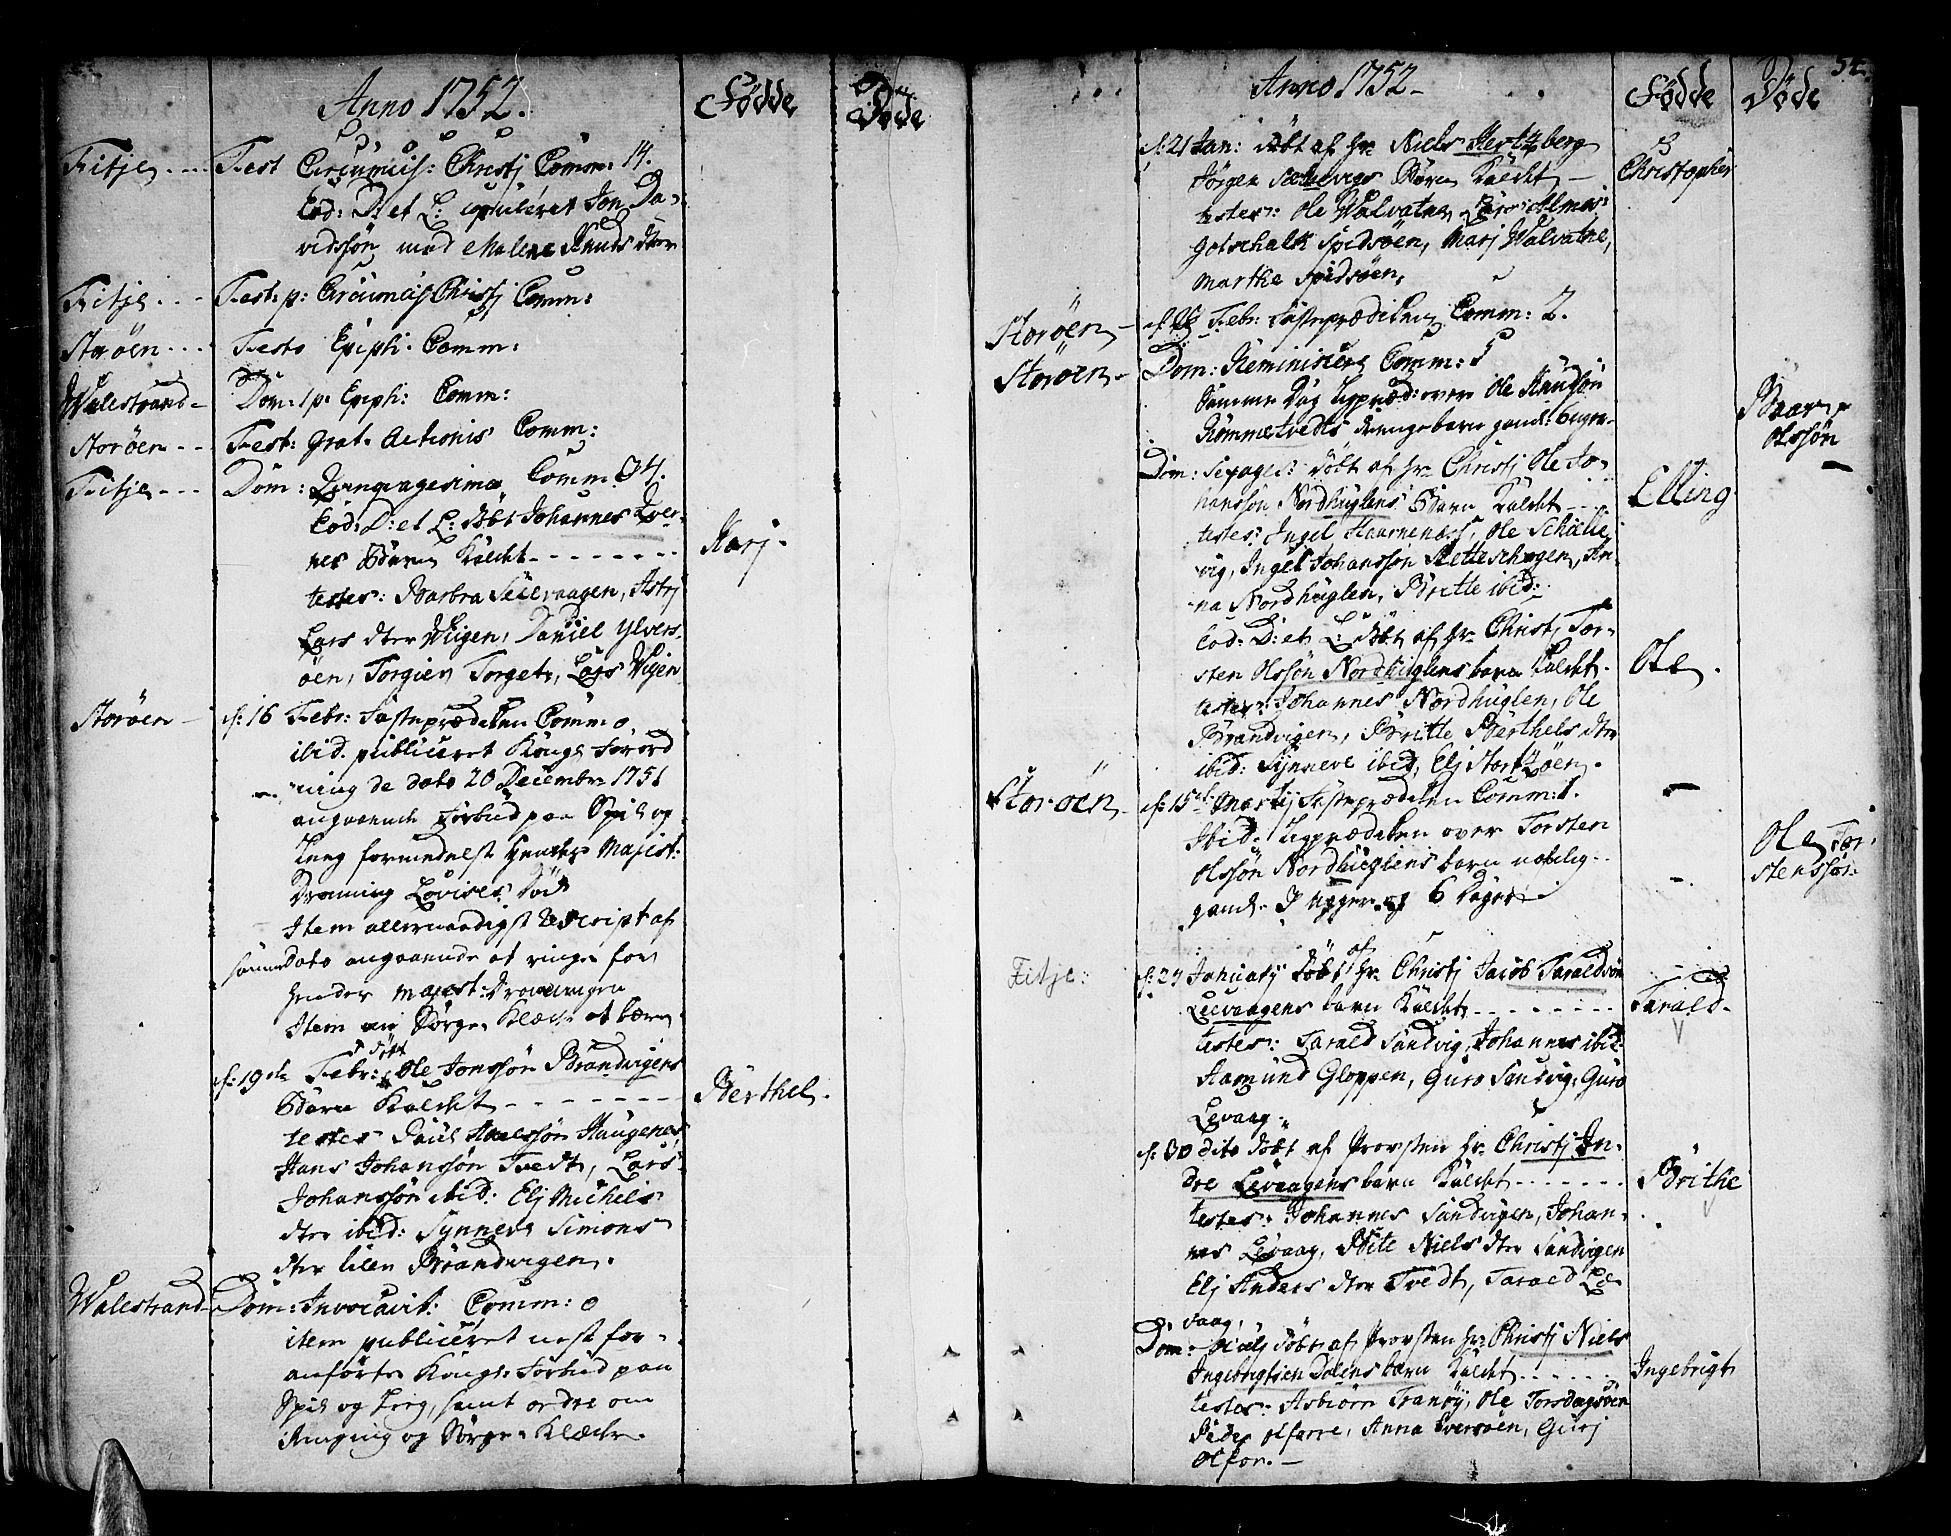 Anno 1752.
Födde
Döde
Fitje
Fest Circumcis: Christj Comm: 14.
Eod: D: et L: copuleret Jon Da-
vidssön med Malene Knuds dtter
Fitje
Fest: p: Circumcis Christj Comm:
Storöen
Festo Epiph: Comm:
Walestrand
Dom: 1 p: Epiph: Comm:
Storöen
Fest: Grat: Actionis Comm:
Fitje
Dom: Qvinqvagesima Comm: 34.
Eod: D: et L: döbt Johannes Tver-
nes Barn kaldet
Marj.
testes: Barbra Seievaagen, Astrj
Lars dter Wiigen, Daniel Ylvers-
öen, Torgier Torget, Lars Wigen
Storöen
d: 16 Febr: Fasteprædiken Comm: 0
ibid. publiceret Kongl: Forord
ning de dato 20 Decembr 1751
angaaende Forbud paa Spil og
Leeg formedelst Hendes Majest:
Dronning Lovises Död
Item allernaadigst Rescript af
samme dato angaaende at ringe for
hendes Majest: Dronningen
Item om Sörge-Klæder at bære
d: 19de Febr: döbt Ole Jonssön Brandvigens
Barn kaldet
Berthel.
testes Paul Knudssön Haugenes,
Hans Johanssön Tvedt, Lars
Johanssön ibid: Elj Michels
dter ibid: Synneva Simons
dter lille Brandvigen.
Walestrand
Dom: Invocavit: Comm: 0
item publiceret nest for-
anförte Kongl: Forbud paa
Spil og Leeg, samt ordre om
Ringning og Sörge-Klæder.
Anno 1752
Födde
Döde
54.
d: 21 Jan: döbt af hr. Niels Hertzberg
Jörgen Sælevigs Barn kaldet
Christopher
testes: Ole Walvatne, Lars Almaas
Gotschalk Spidsöen, Marj Walvatne,
Marthe Spidsöen,
Storöen
Febr: Fasteprædiken Comm: 2.
Storöen
Dom: Reminiscere Comm: 5
Samme Dag Ligpræd: over Ole Knudsön
Rommetvedts drengebarn gaml: 6 uger
Olssön
Dom: Sexages: döbt af hr. Christj Ole Jo-
hanssön Nordhuglens Barn kaldet
Elling
testes: Ingel Haarnenes, Ole Schalle
vig, Ingel Johanssön Slettesckogen, An-
na Nordhuglen, Britte ibid:
Eod: D: et L: döbt af hr. Christj Tor-
sten Olssön Nordhuglens barn kaldet
Ole.
testes: Johannes Nordhuglen, Ole
Brandvigen, Britte Berthels dter
ibid: Synneve ibid, Elj Storöen.
Storöen
d: 15de Martij Fasteprædiken Comm: 1.
Ibid: Ligprædiken over Torsten
Olssön Nordhuglens barn
gaml: 3 uger og 6 dager
Ole Tor-
stenssön
Fitje:
d: 27 Januarj döbt af hr. Christj Jacob Taraldsön
Leevaagens barn kaldet
Tarald
testes: Tarald Sandvig, Johannes ibid:
Aamund Gloppen, Guro Sandvig, Guro
Levaag.
d: 30 dito döbt af Provsten hr. Christj An-
dre Levaagens barn kaldet
Brithe
testes: Johannes Sandvigen, Johan-
nes Levaag, Brite Niels dter Sandvigen
Elj Anders dter Tvedt, Tarald Le-
vaag,
Dom: Oculj döbt af Provsten hr. Christj Niels
Ingebrigtsen Dalens barn kaldet
Ingebrigt
testes: Asbiörn Tranöy, Ole Torsdagsöen
Peder Olfarre, Anna Iversöen, Gurj
Olfar.